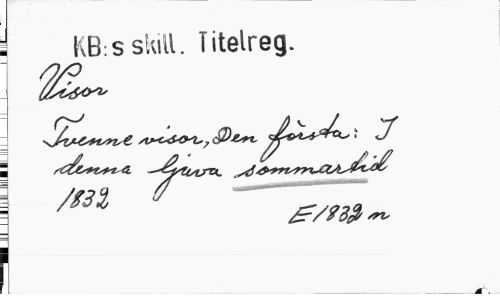 KB:s skill. Titelreg.
Visor
Tvenne visor, Den första: I
denna ljuva sommartid
1832
E 1832 n